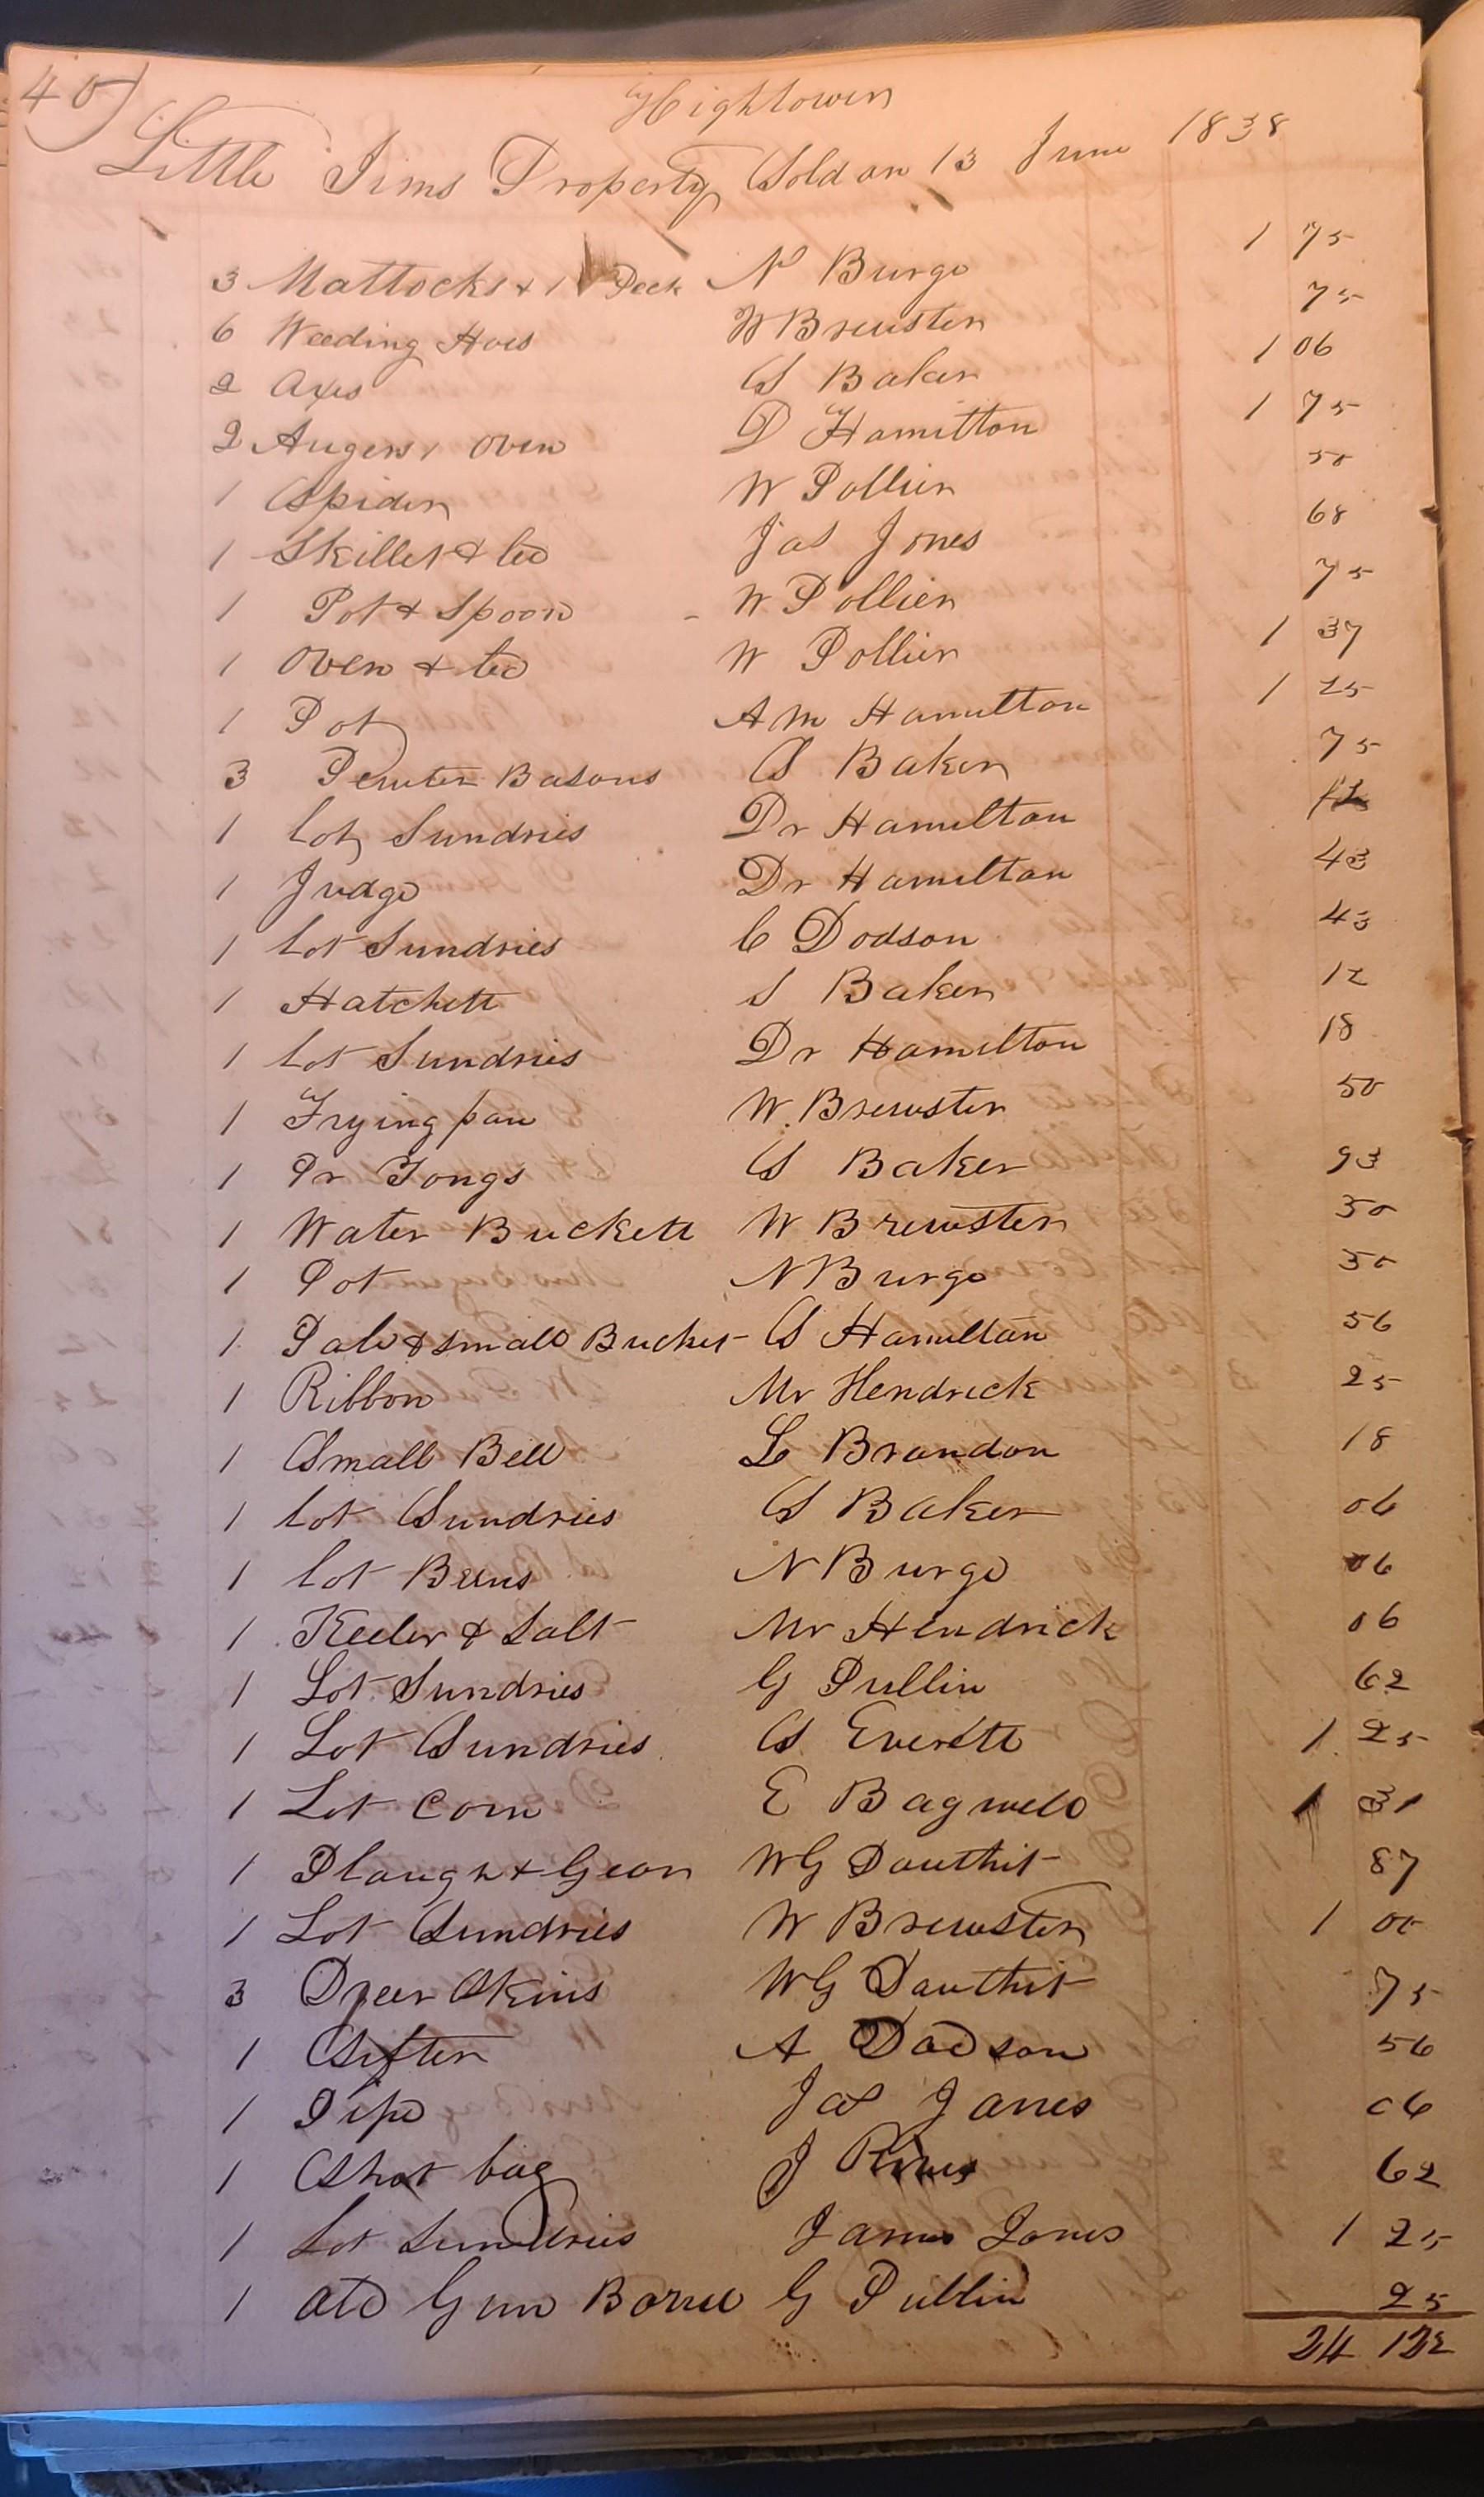 40)
Hightower
Little Jims Property Sold on 13 June 1838
3 Mattocks & 1 Peck N Burge 1 75
6 Weeding Hoes W Brewster 75
2 Axes S Baker 1 06
2 Augers 1 Oven D Hamilton 1 75
1 Spider W Pollien 50
1 Skillet & led Jas Jones 68
1 Pot & Spoon W Pollien 75
1 Oven & led W Pollien 1 37
1 Pot A M Hamilton 1 25
3 Pewter Basons S Baker 75
1 lot Sundries Dr Hamilton
1 Judge Dr Hamilton 43
1 lot Sundries C Dodson 43
1 Hatchett S Baker 12
1 lot Sundries Dr Hamilton 18
1 Frying pan W. Brewster 50
1 Pr Tongs S Baker 93
1 Water Buckett W Brewster 50
1 Pot N Burge 50
1 Pale & small Bucket S Hamilton 56
1 Ribbon Mr Hendrick 25
1 Small Bell L Brandon 18
1 lot Sundries S Baker 06
1 lot Beens N Burge 06
1 Keeler & Salt Mr Hendrick 06
1 Lot Sundries G Pullin 62
1 Lot Sundries S Everett 1 25
1 Lot Corn E Bagwell 1 31
1 Plough & Gear WG Douthit 87
1 Lot Sundries W Brewster 1 00
3 Deer Skins WG Douthit 75
1 Sifter A Dodson 56
1 Pipe Jas Jones 06
1 Shot bag J 62
1 Lot Sundries James Jones 1 25
1 old Gun Barrel G Pullin 25
24 12